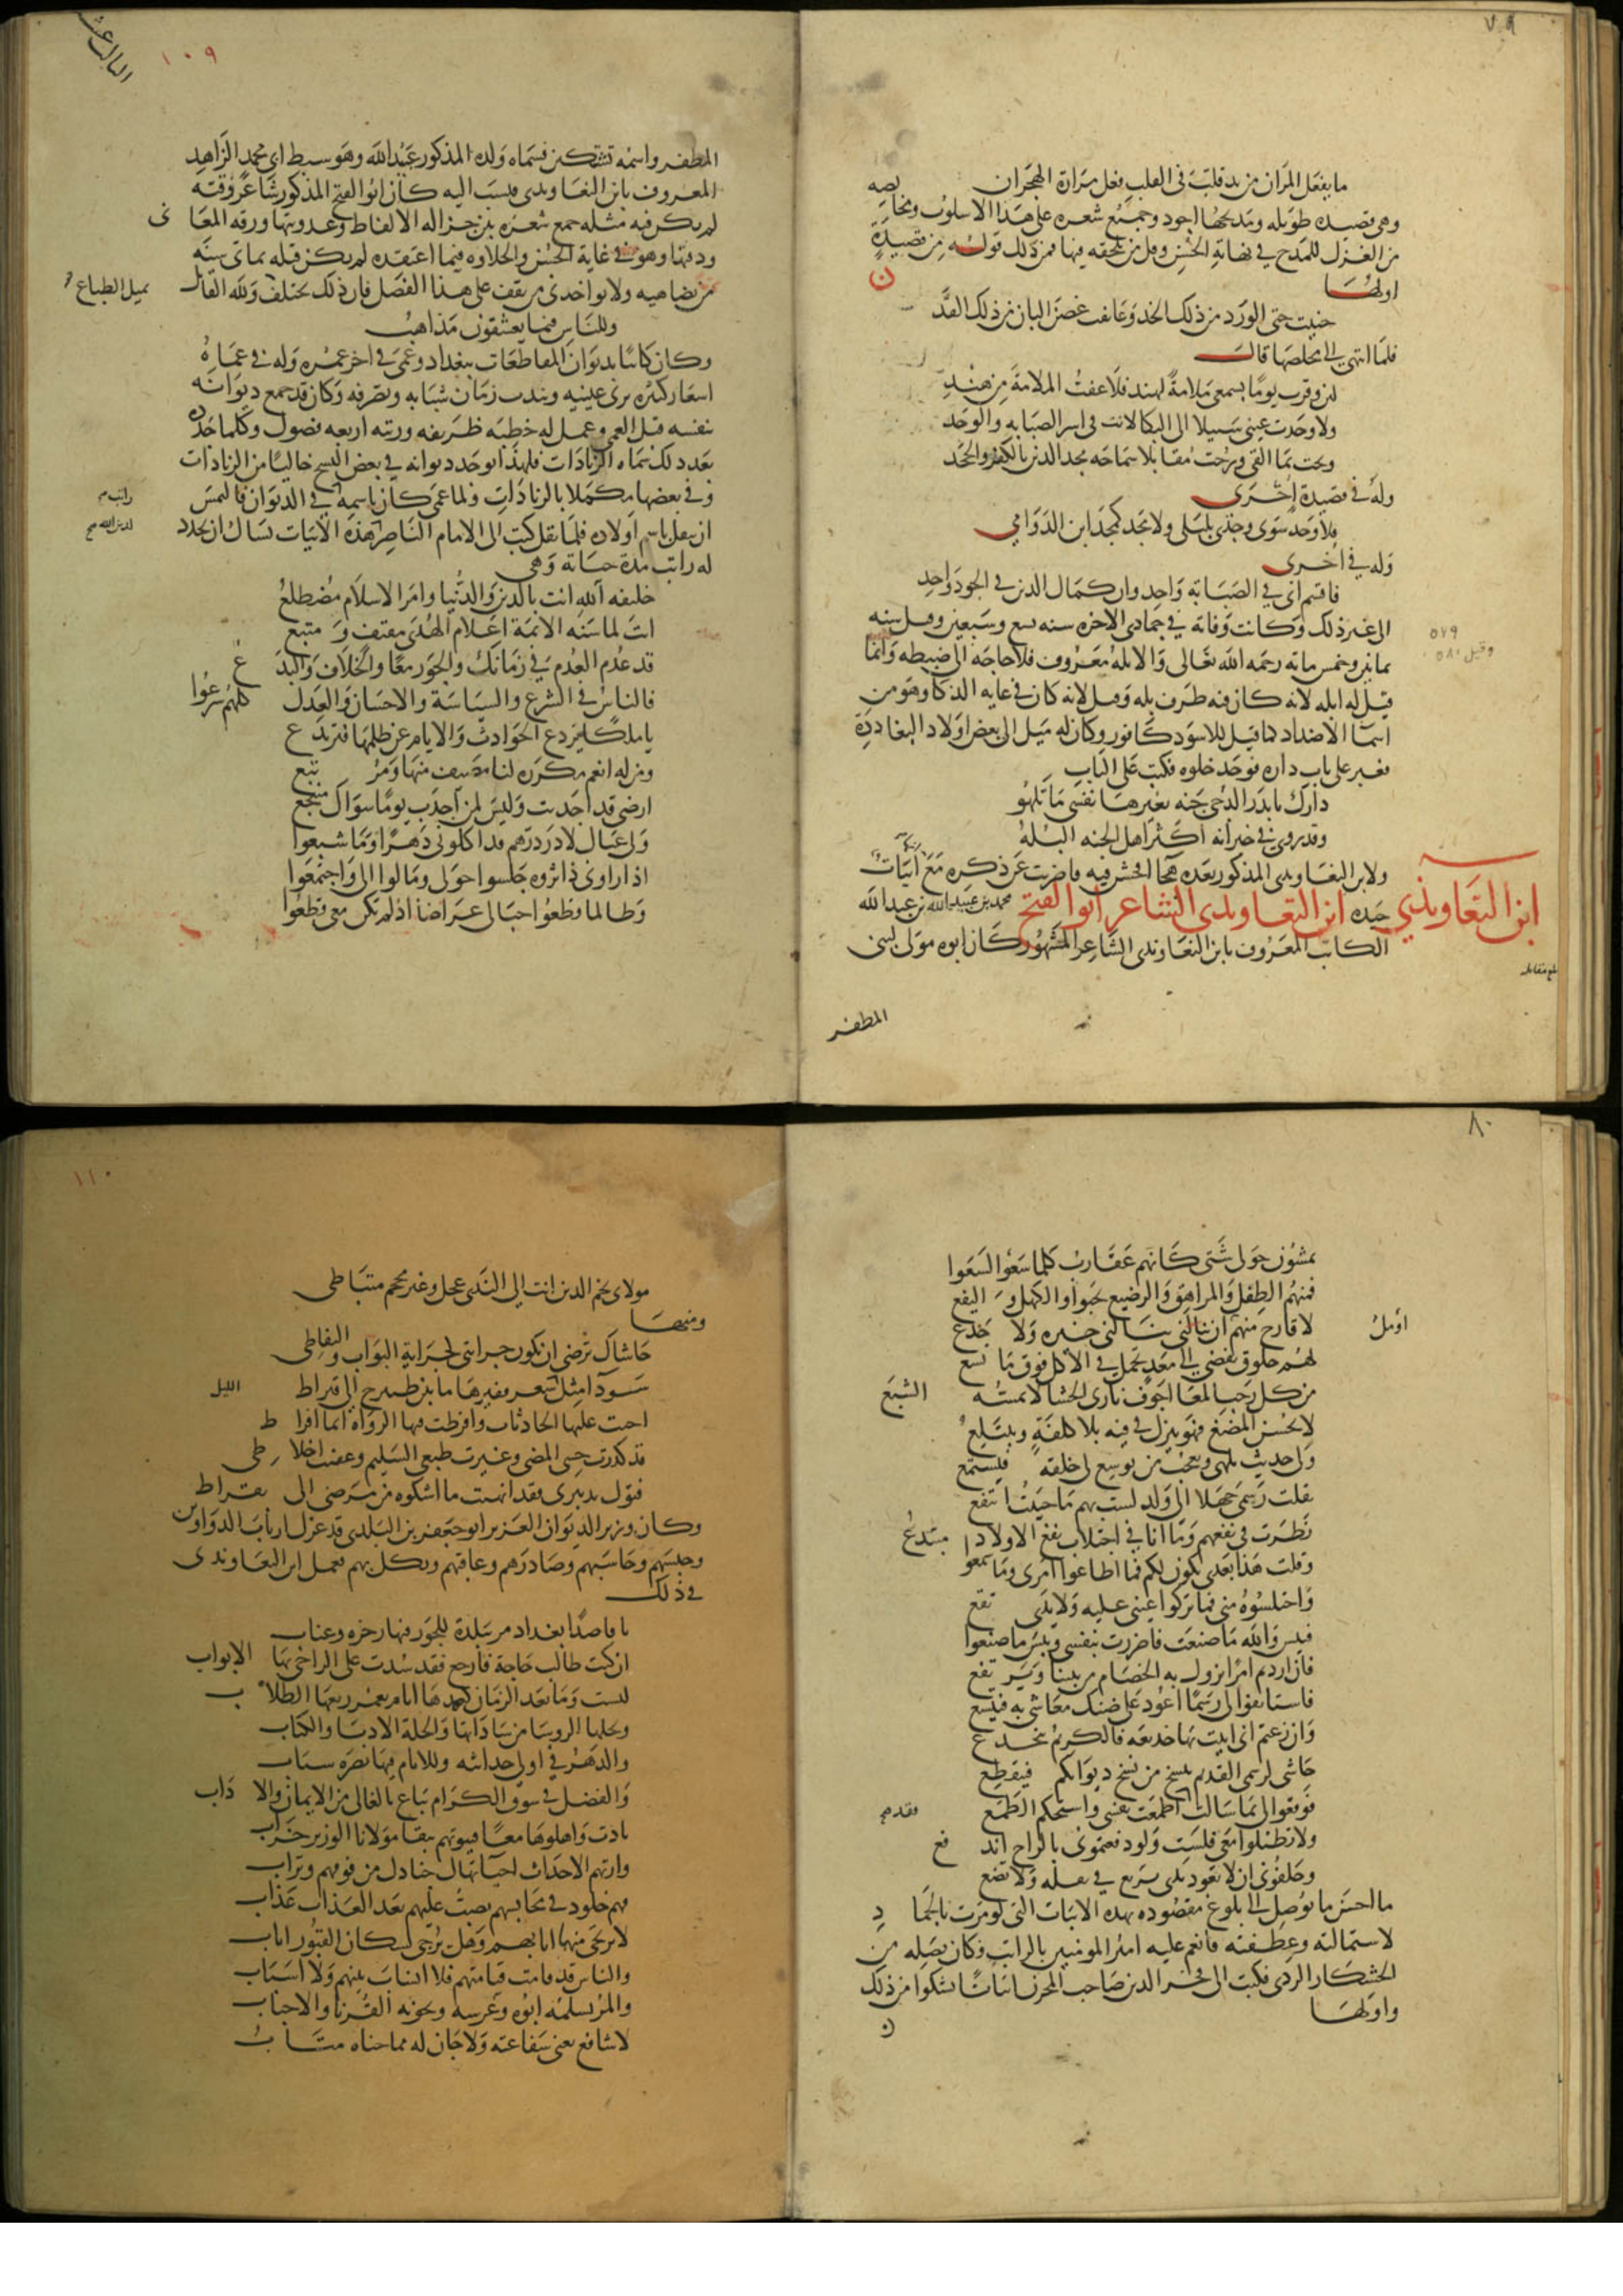 ٧٩
ما يفعل المران من يد قلب في القلب فعل مرارة الهجران
وهي قصيده طويله ومديحها اجود وجميع شعره على هذا الاسلوب ومخالصه
من الغزل للمدح في نهاية الحسن وقل من يلحقه فيها فمن ذلك قوله من قصيدة
اولها
جنيت جني الورد من ذلك الخد وعانقت غصن البان من ذلك القد
فلما انتهى الى مخلصها قال
لئن وقرت يوما بسمعي ملامة لهند فلا عفت الملامة من هند
ولا وجدت عيني سبيلا الى البكا لانت في اسر الصبابه والوجد
وبحت بما القى ورحت مقابلا سماحة مجد الدين بالكفر والجحد
وله في قصيدة اخرى
فلا وجد سوى وجدي بليلى ولا مجد كمجد ابن الدوامي
وله في اخرى
فاقسم اني في الصبابة واحد وان كمال الدين في الجود واحد
الى غير ذلك وكانت وفاته في جمادى الاخره سنه تسع وسبعين وقيل سنه
ثمانين وخمس مائه رحمه الله تعالى والابله معروف فلا حاجة الى ضبطه وانما
قيل له ابله لانه كان فيه طرف بله وقيل لانه كان في غايه الذكا وهو من
اسما الاضداد كما قيل للاسود كافور وكان له ميل الى بعض اولاد البغاددة
فعبر على باب داره فوجد خلوه فكتب على الباب
دارك يا بدر الدجى جنه بغيرها نفسي ما تلهو
وقد روي في خبر انه اكثر اهل الجنه البله
ولابن التعاويذي المذكور بعده هجا افحش فيه فاضربت عن ذكره مع ابيات
٥٧٩
وقيل ٥٨٠
ابن التعاويذي
جيده ابن التعاويذي الشاعر ابو الفتح محمد بن عبيد الله بن عبد الله
الكاتب المعروف بابن التعاويذي الشاعر المشهور كان ابوه مولى لبني
بلغ مقابله
المظفر
١٠٩
الثالث عشر
المظفر واسمه نشتكين فسماه ولده المذكور عبيد الله وهو سبط ابي محمد الزاهد
المعروف بابن التعاويذي فنسب اليه كان ابو الفتح المذكور شاعر وقته
لم يكن فيه مثله جمع شعره بين جزاله الالفاظ وعذوبتها ورقه المعاني
ودقتها وهو في غاية الحسن والحلاوه فيما اعتقده لم يكن قبله بمائتي سنه
من يضاهيه ولا يواخذني من يقف على هذا الفصل فان ذلك يختلف ولله القائل
بميل الطباع
وللناس فيما يعشقون مذاهب
وكان كاتبا بديوان المقاطعات ببغداد وعمي في اخر عمره وله في عماه
اشعار كثيره يرثي عينيه ويندب زمان شبابه وتصرفه وكان قد جمع ديوانه
بنفسه قبل العمى وعمل له خطبه ظريفه ورتبه اربعه فصول وكلما جدده
بعد ذلك سماه الزيادات فلهذا يوجد ديوانه في بعض النسخ خاليا من الزيادات
وفي بعضها مكملا بالزيادات ولما عمي كان باسمه في الديوان فالتمس
راتب
ان ينقل باسم اولاده فلما نقل كتب الى الامام الناصر هذه الابيات يسال ان يجدد
لدين الله
له راتب مدة حياته وهي
خليفه الله انت بالدين والدنيا وامر الاسلام مضطلع
انت لما سنه الائمة اعلام الهدى مقتف ومتبع
قد عدم العدم في زمانك والجور معا والخلاف والبدع
فالناس في الشرع والسياسة والاحسان والعدل كلهم شرع
يا ملكا يردع الحوادث والايام عن ظلمها فترتدع
ومن له انعم مكررة لنا مصيف منها ومرتبع
ارضي قد اجدبت وليس لمن اجدب يوما سواك منتجع
ولي عيال لا در درهم قد اكلوني دهرا وما شبعوا
اذا راوني ذا ثروه جلسوا حولي ومالوا الي واجتمعوا
وطالما قطعوا حبالي اعراضا اذا لم تكن معي قطعوا
٨٠
يمشون حولي شتى كانهم عقارب كلما سعوا لسعوا
فمنهم الطفل والمراهق والرضيع يحبو والكهل واليفع
لا قارح منهم اؤمل ان ينالني خيره ولا جذع
لهم حلوق تفضي الى معد تحمل في الاكل فوق ما تسع
من كل رحب المعا اجوف ناري الحشا لا يمسه الشبع
لا يحسن المضغ فهو ينزل في فيه بلا كلفة ويبتلع
ولي حديث يلهي ويعجب من يوسع لي خلقه فيستمع
نقلت رسمي جهلا الى ولد لست بهم ما حييت انتفع
نظرت في نفعهم وما انا في اجتلاب نفع الاولاد مبتدع
وقلت هذا بعدي يكون لكم فما اطاعوا امري وما سمعوا
واختلسوه مني فما تركوا عيني عليه ولا يدي تقع
فبئس والله ما صنعت فاضررت بنفسي وبئس ما صنعوا
فان اردتم امرا يزول به الخصام من بيننا ويرتفع
فاستانفوا لي رسما اعود على ضنك معاشي به فيتسع
وان زعمتم اني اتيت بها خديعه فالكريم ينخدع
حاشى لرسم القديم ينسخ من نسخ ديوانكم فينقطع
فوقعوا لي بما سالت فقد اطمعت نفسي واستحكم الطمع
ولا تطيلوا معي فلست ولو دفعتموني بالراح اندفع
وحلفوني ان لا تعود يدي ترفع في نقله ولا تضع
ما احسن ما توصل الى بلوغ مقصوده بهذه الابيات التي لو مرت بالجماد
لاستمالته وعطفته فانعم عليه امير المومنين بالراتب فكان يصله من
الخشكار الردي فكتب الى فخر الدين صاحب المخزن ابياتا يشكوا من ذلك
واولها
١١٠
مولاي فخر الدين انت الى الندى عجل وغيرك محجم متباطي
ومنها
حاشاك ترضى ان تكون جرايتي كجراية البواب والنفاط
سودا مثل الليل سعر قفيزها ما بين طسوج الى قيراط
اخنت عليها الحادثات وافرطت فيها الرداه ايما افراط
قد كدرت حسي المضي وغيرت طبعي السليم وعفنت اخلاطي
فتول تدبيري فقد انهيت ما اشكوه من مرضي الى بقراط
وكان وزير الديوان العزيز ابو جعفر بن البلدي قد عزل ارباب الدواوين
وحبسهم وحاسبهم وصادرهم وعاقبهم ونكل بهم فعمل ابن التعاويذي
في ذلك
يا قاصدا بغداد مر ببلدة للجور فيها زخرة وعباب
ان كنت طالب حاجة فارجع فقد سدت على الراجي بها الابواب
ليست وما بعد الزمان كعهدها ايام يعمر ربعها الطلاب
ويحلها الروسا من ساداتها والجلة الادبا والكتاب
والدهر في اولى حداثته وللايام فيها نضره وشباب
والفضل في سوق الكرام يباع بالغالي من الاثمان والاداب
بادت واهلوها معا فبيوتهم ببقا مولانا الوزير خراب
وارتهم الاجداث احيا تهال جنادل من فوقهم وتراب
فهم خلود في محابسهم يصب عليهم بعد العذاب عذاب
لا يرتجى منها ايابهم وهل يرجى لسكان القبور اياب
والناس قد قامت قيامتهم فلا انساب بينهم ولا اسباب
والمرء يسلمه ابوه وعرسه ويخونه القرباء والاحباب
لا شافع تغني شفاعته ولا جان له مما جناه متاب